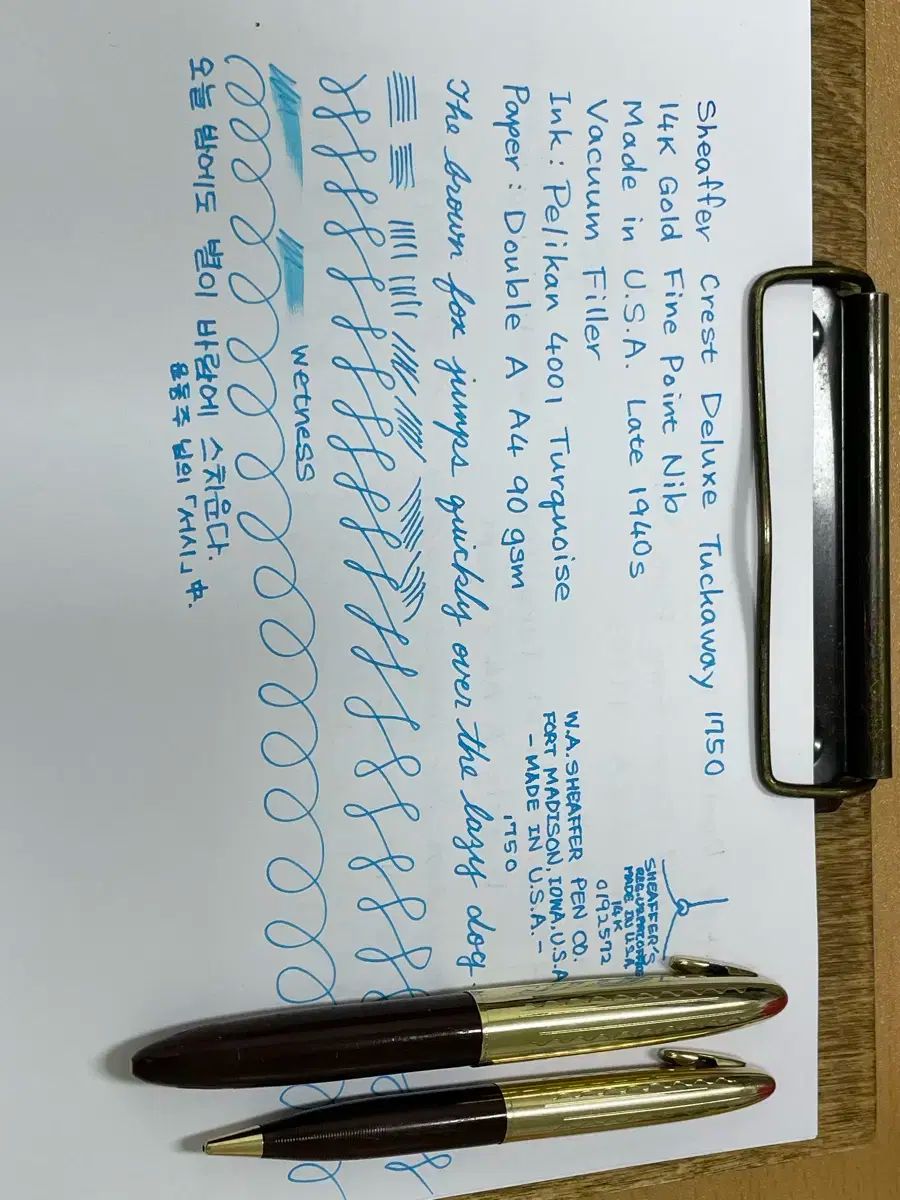 Sheaffer Crest Deluxe Tuckaway 1750
14K Gold Fine Point Nib
Made in U.S.A. Late 1940s
Vacuum Filler
Ink: Pelikan 4001 Turquoise
Paper: Double A A4 90 gsm
SHEAFFER'S
MADE IN U.S.A
14K
0192572
W.A.SHEAFFER PEN CO.
FORT MADISON, IOWA, U.S.A
- MADE IN U.S.A. -
1750
The brown fox jumps quickly over the lazy dog.
wetness
오늘 밤에도 별이 바람에 스치운다.
윤동주 님의 「서시」 中.